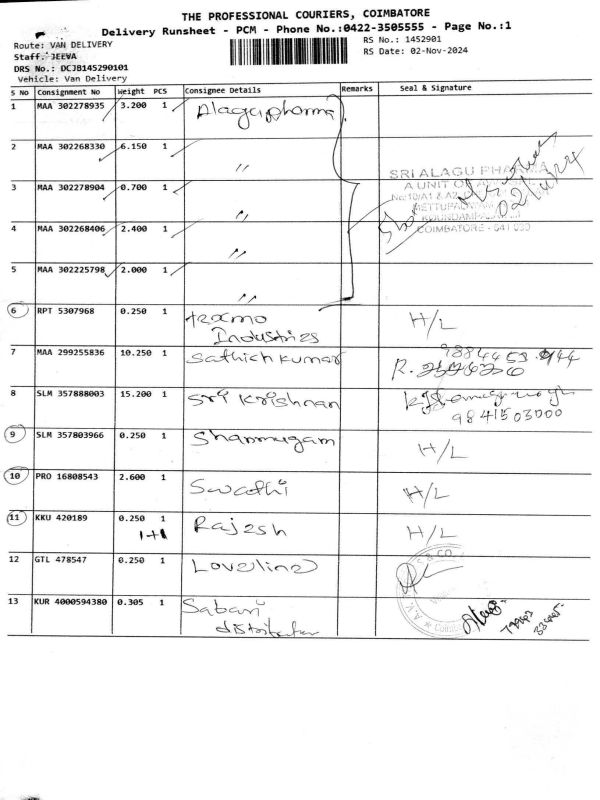 THE PROFESSIONAL COURIERS, COIMBATORE
Delivery Runsheet - PCM - Phone No.:0422-3505555 - Page No.:1
Route: VAN DELIVERY
RS No.: 1452901
Staff.: JEEVA
RS Date: 02-Nov-2024
DRS No.: DCJB145290101
Vehicle: Van Delivery
S No Consignment No Weight PCS Consignee Details Remarks Seal & Signature
1 MAA 302278935 3.200 1 Alagu pharma
2 MAA 302268330 6.150 1 〃
SRI ALAGU PHARMA
A UNIT OF
3 MAA 302278904 0.700 1 〃
02/11/24
METTUPALAYAM
COIMBATORE - 641 030
4 MAA 302268406 2.400 1 〃
5 MAA 302225798 2.000 1 〃
6 RPT 5307968 0.250 1 texmo Industries H/L
7 MAA 299255836 10.250 1 Sathich kumar
R.
8 SLM 357888003 15.200 1 Sri Krishnan
9841503000
9 SLM 357803966 0.250 1 Shanmugam H/L
10 PRO 16808543 2.600 1 Swathi H/L
11 KKU 420189 0.250 1 Rajesh H/L
1+1
12 GTL 478547 0.250 1 Loveline
S & CO
13 KUR 4000594380 0.305 1 Sabari distributor